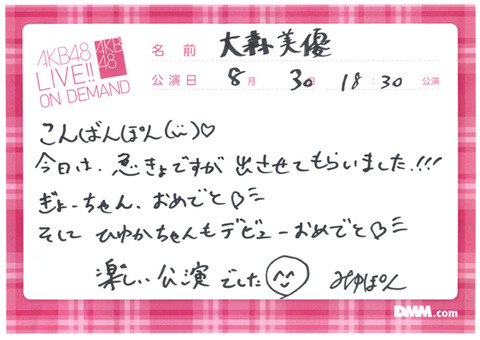 AKB48
LIVE!!
ON DEMAND
AKB
48
名前 大森美優
公演日 8月 30日 18:30 公演
こんばんぽん(¨)♡
今日は、急きょですが 出させてもらいました!!!
ぎょーちゃん、おめでと♡
そして ひゆかちゃんもデビューおめでと♡
楽しい公演でした みゆぽん
DMM.com